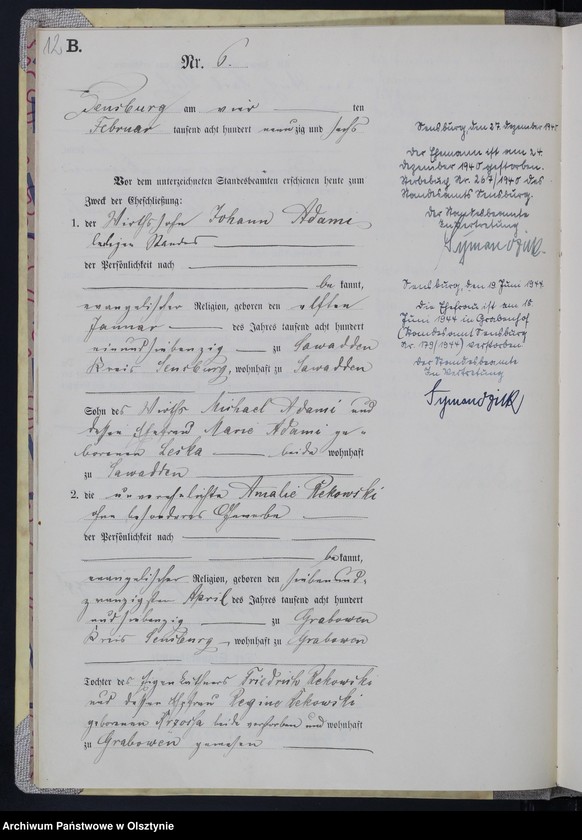 12 B.
Nr. 6.
Sensburg am vier ten
Februar tausend acht hundert neunzig und sechs
Vor dem unterzeichneten Standesbeamten erschienen heute zum
Zweck der Eheschließung:
1. der Wirthssohn Johann Adami
ledigen Standes
der Persönlichkeit nach
be kannt,
evangelischer Religion, geboren den elften
Januar des Jahres tausend acht hundert
einundsiebenzig zu Sawadden
Kreis Sensburg, wohnhaft zu Sawadden
Sohn des Wirths Michael Adami und
dessen Ehefrau Marie Adami ge-
borenen Leska beide wohnhaft
zu Sawadden
2. die unverehelichte Amalie Rekowski
ohne besonderes Gewerbe
der Persönlichkeit nach
be kannt,
evangelischer Religion, geboren den siebenund-
zwanzigsten April des Jahres tausend acht hundert
siebenzig zu Grabowen
Kreis Sensburg, wohnhaft zu Grabowen
Tochter des Eigenkäthners Friedrich Rekowski
und dessen Ehefrau Regine Rekowski
geborenen beide verstorben und wohnhaft
zu Grabowen gewesen
Sensburg, den 27. Dezember 194
Der Ehemann ist am 24.
Dezember 1940 gestorben.
Sterbebuch Nr. 267/1940 des
Standesamts Sensburg.
Der Standesbeamte
In Vertretung
Symandzik
Sensburg, den 19 Juni 1944
Die Ehefrau ist am 18.
Juni 1944 in Grabenhof
(Standesamt Sensburg
Nr. 179/1944) verstorben
Der Standesbeamte
In Vertretung
Symandzik
Archiwum Państwowe w Olsztynie